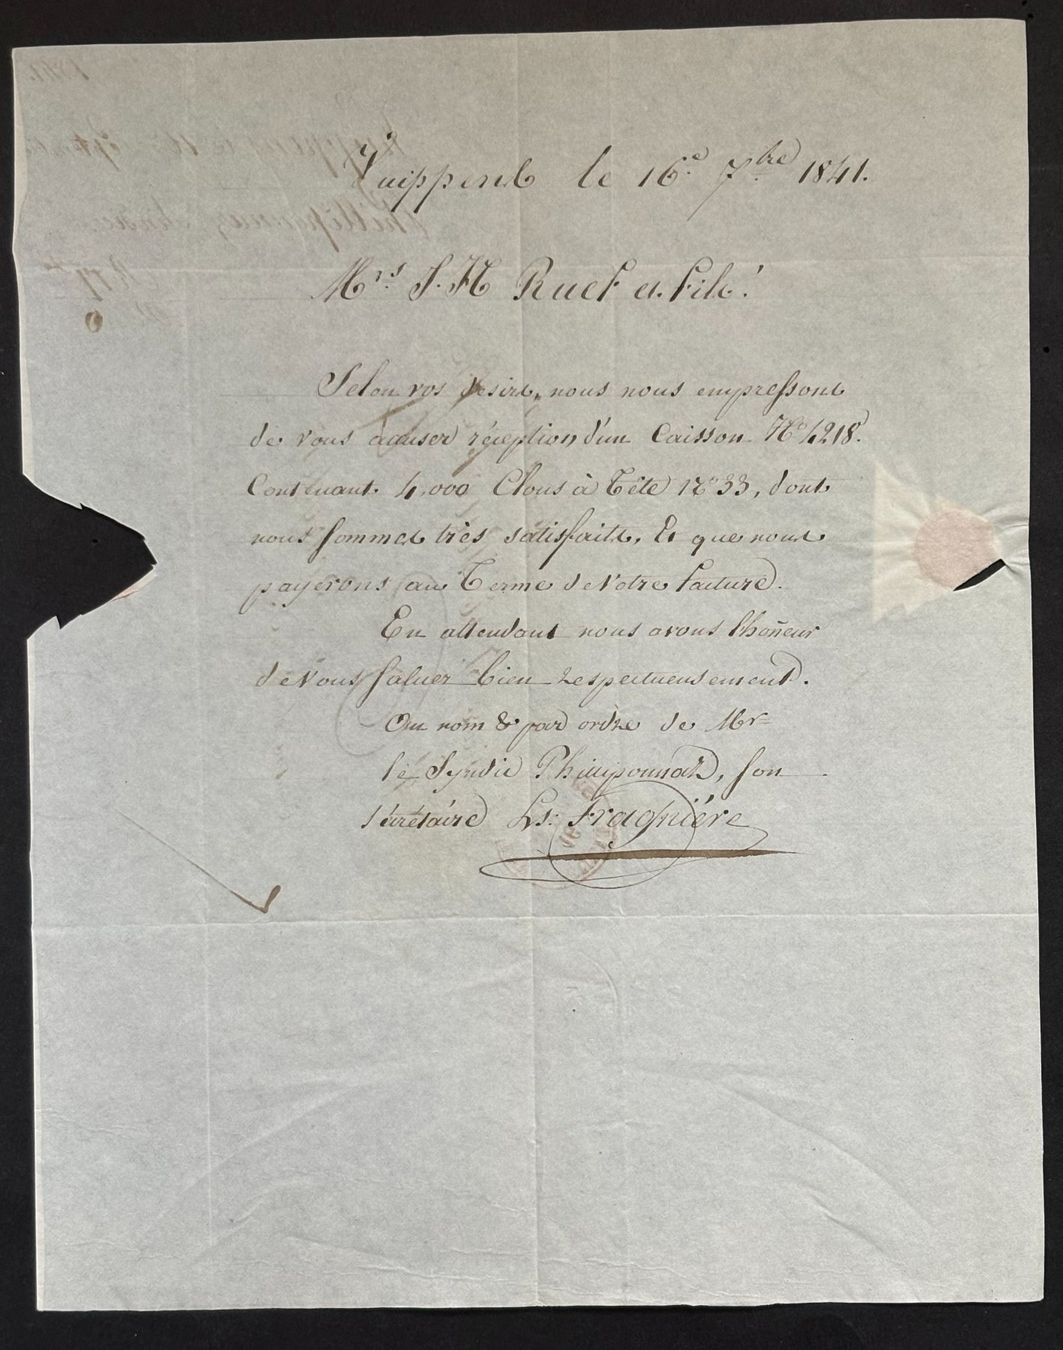 Zuippens le 16e 7bre 1841.
Mrs J. H Ruef et fils!
Selon vos désirs, nous nous empressons
de vous accuser réception d'un Caisson No 4218.
Contenant 4,000 Clous à Tête No 33, dont
nous sommes très satisfaits. Et que nous
payerons au Terme de Votre facture.
En attendant nous avons l'honeur
de Vous saluer bien respectueusement.
Au nom & par ordre de Mr
le Syndic Philliponnaz, son
secrétaire Ls. Fragnière